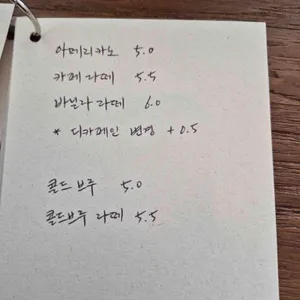 아메리카노 5.0
카페 라떼 5.5
바닐라 라떼 6.0
* 디카페인 변경 + 0.5
콜드 브루 5.0
콜드브루 라떼 5.5